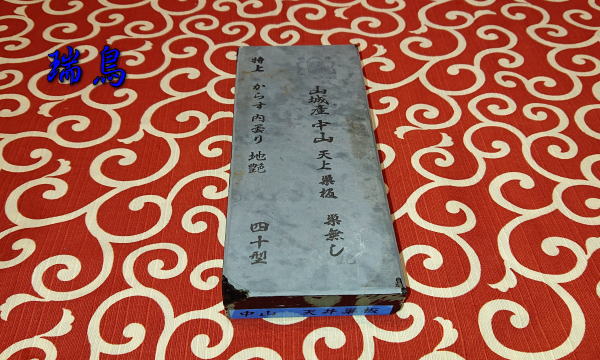 瑞鳥
山城産中山 天上巣板 巣無し
特上 からす 内曇り 地艶 四十型
中山 天井巣板